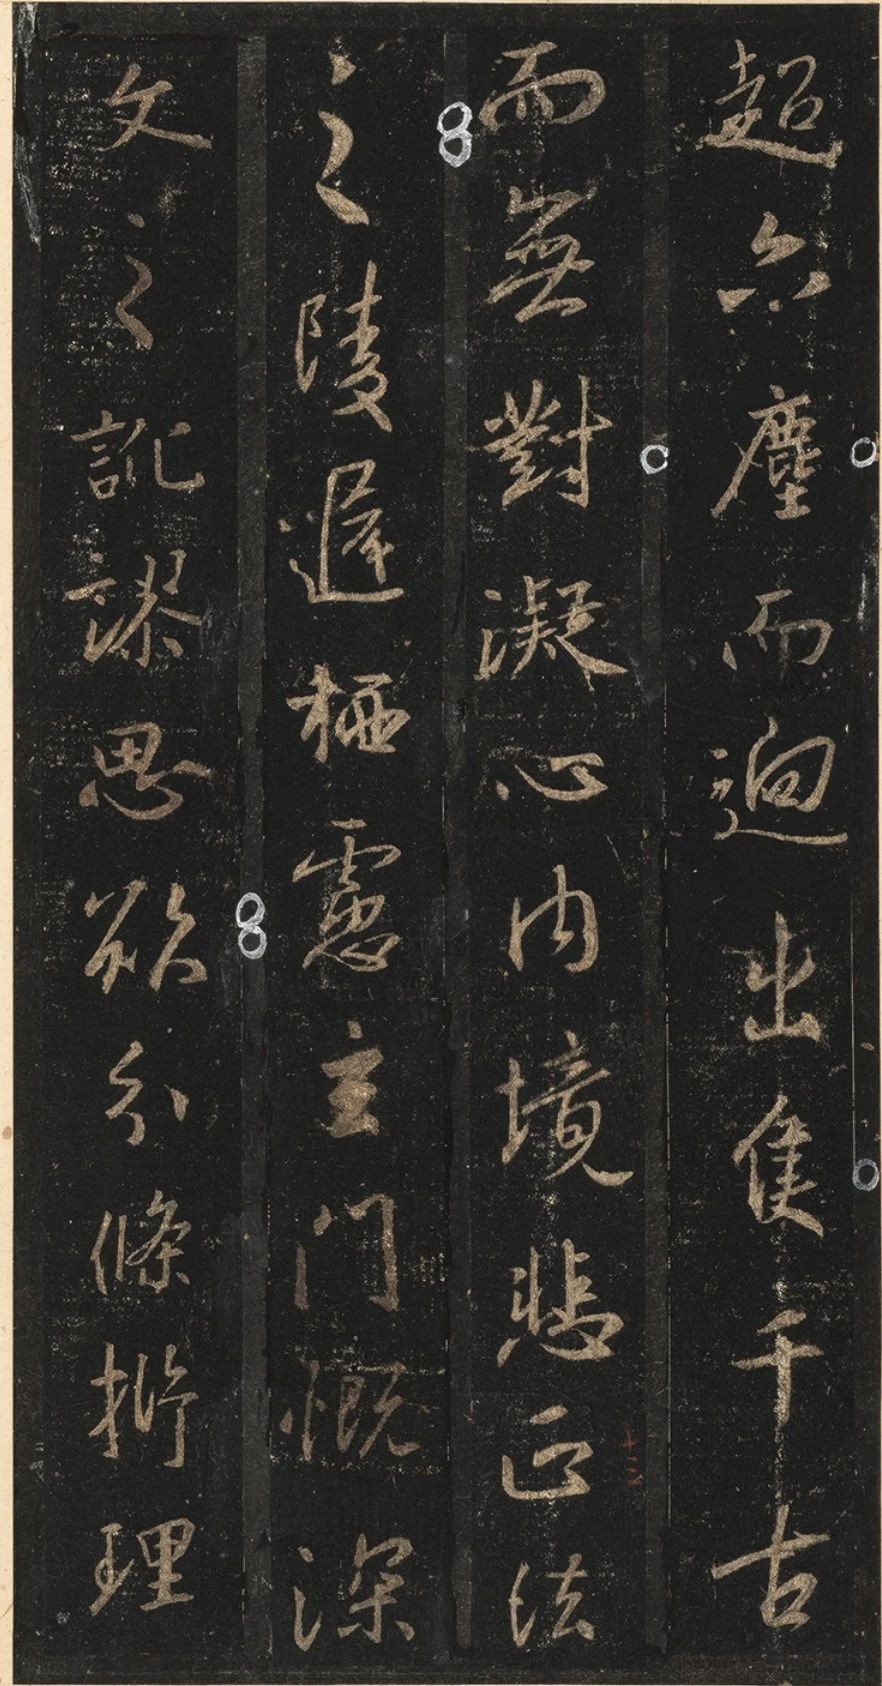 超六塵而迥出隻千古
而無對凝心内境悲正法
之陵遲栖慮玄門慨深
文之訛謬思欲分條析理
十三